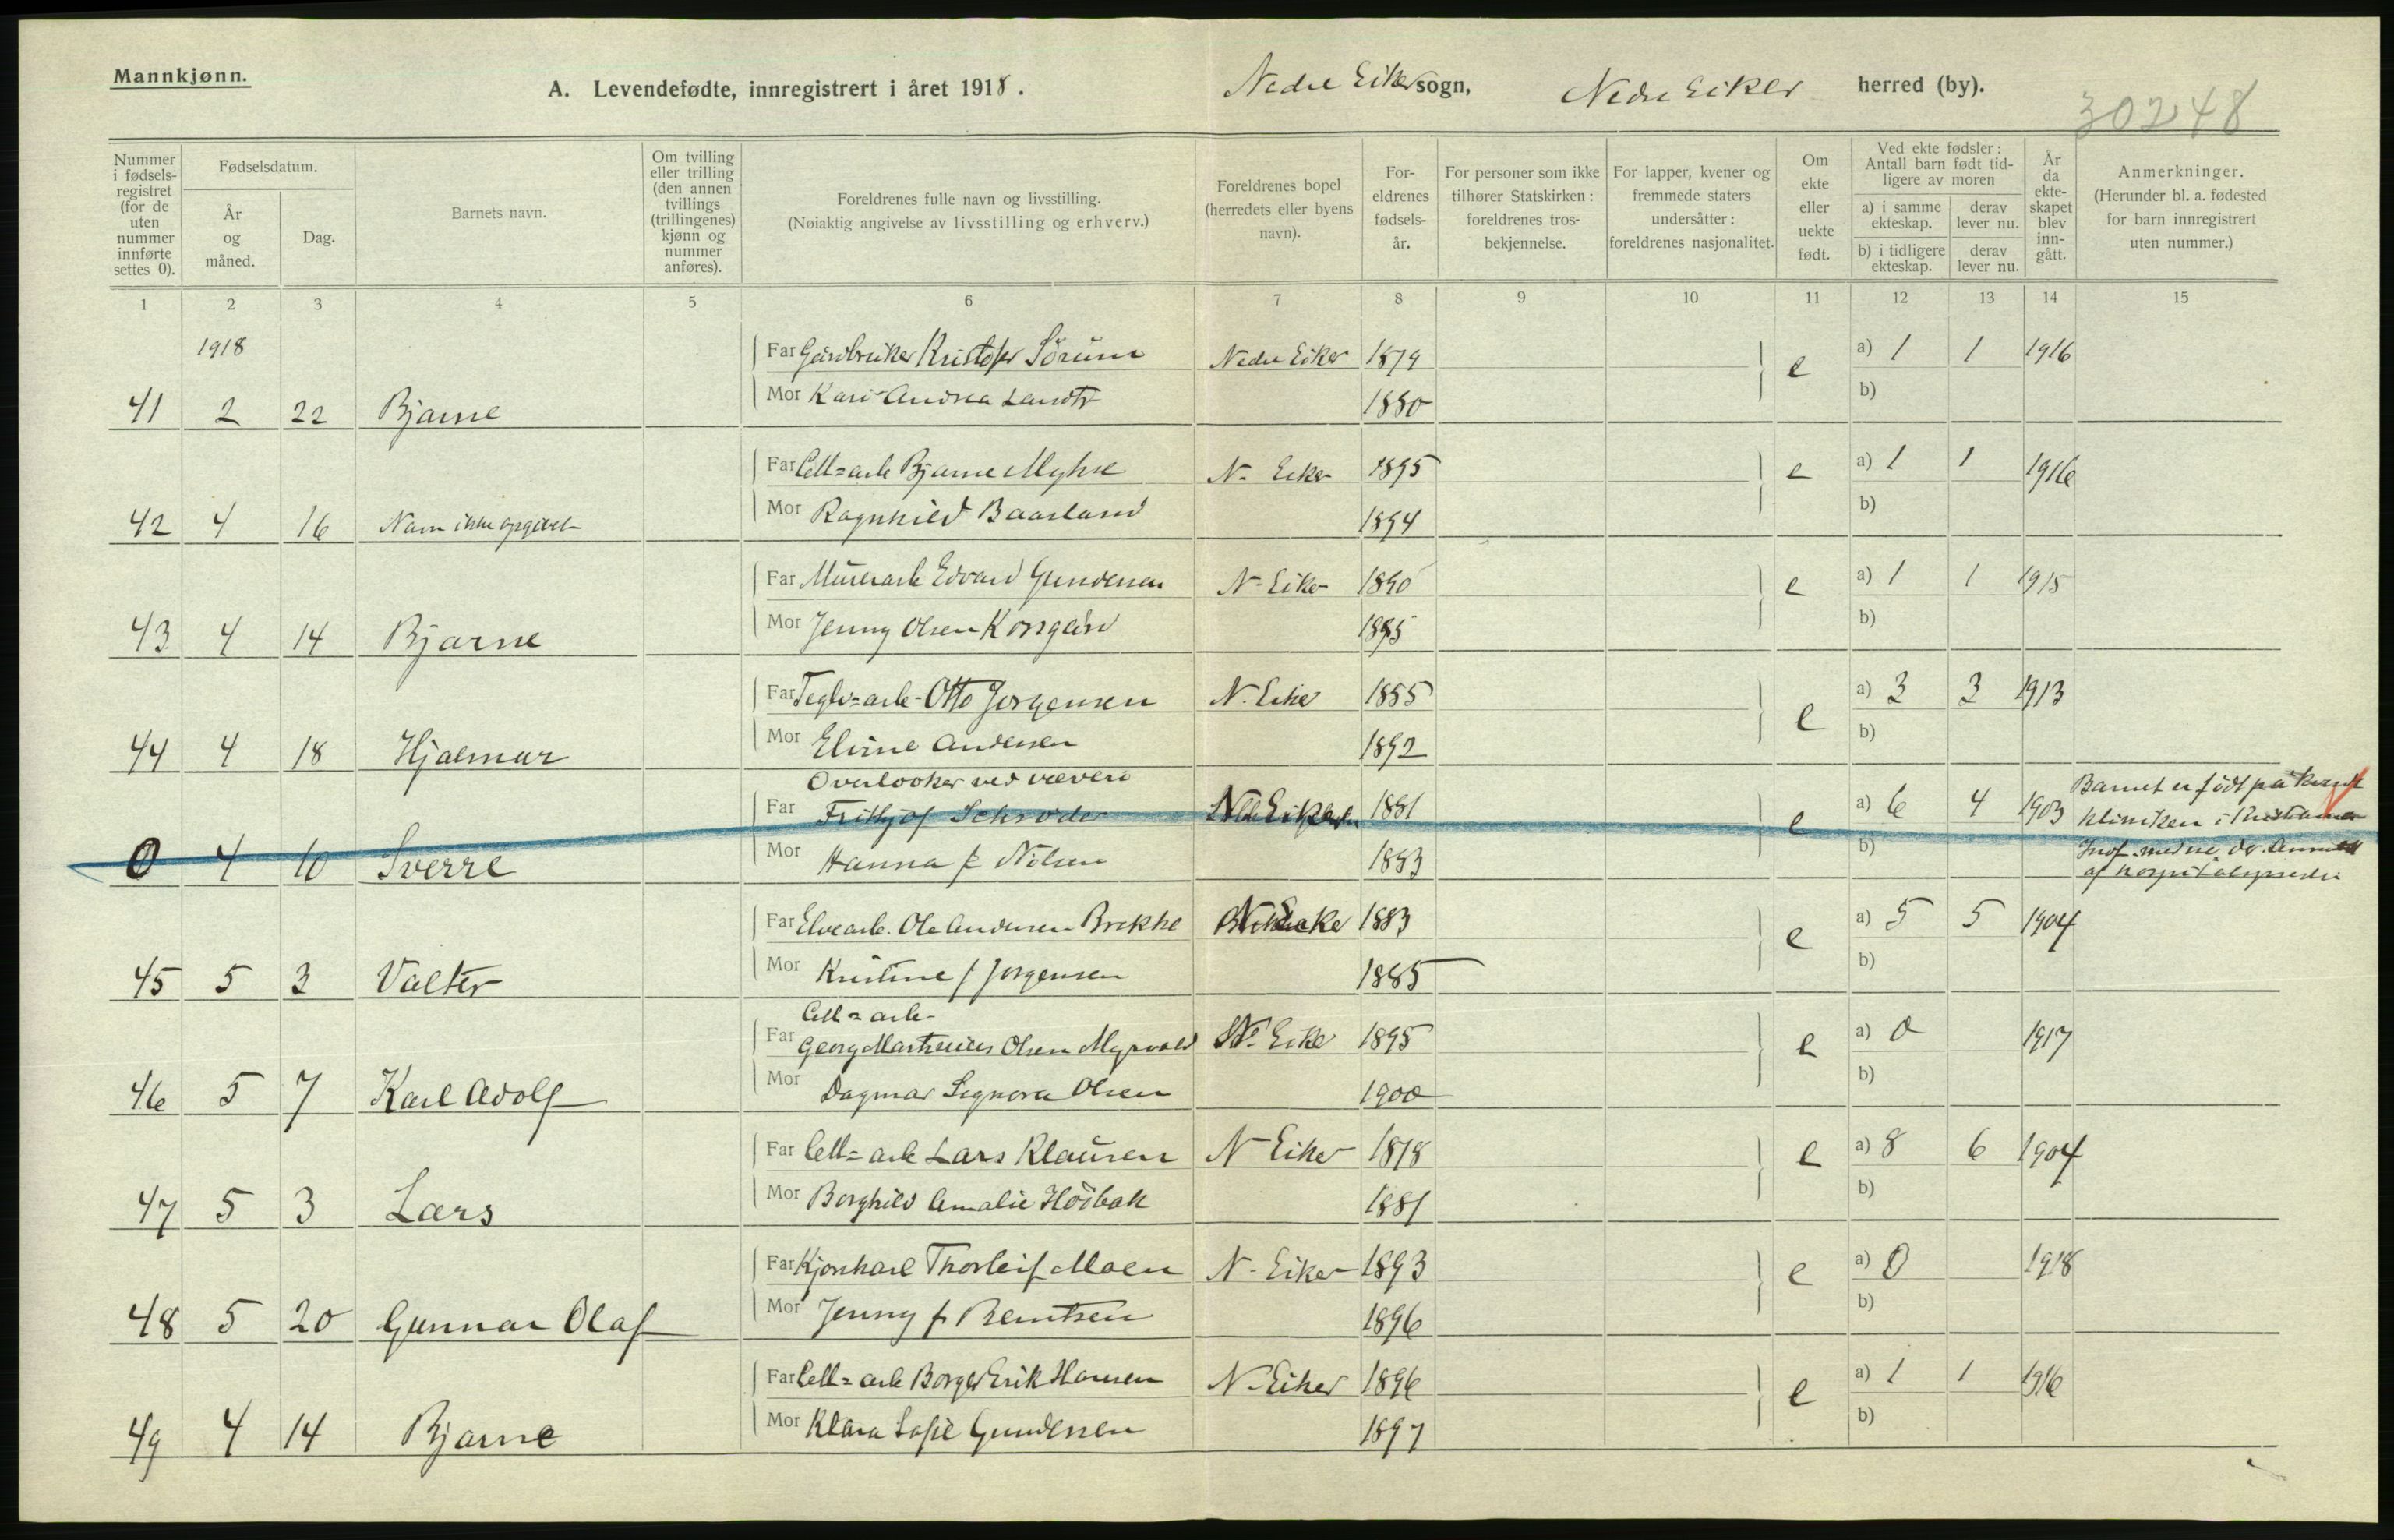 Mannkjønn.
A. Levendefødte, innregistrert i året 1918.
Nedre Eiker sogn, Nedre Eiker herred (by).
30248
Nummer i fødsels-registret (for de uten nummer innførte settes 0).
Fødselsdatum.
År og måned.
Dag.
Barnets navn.
Om tvilling eller trilling (den annen tvillings (trillingenes) kjønn og nummer anføres).
Foreldrenes fulle navn og livsstilling.
(Nøiaktig angivelse av livsstilling og erhverv.)
Foreldrenes bopel (herredets eller byens navn).
For-eldrenes fødsels-år.
For personer som ikke tilhører Statskirken: foreldrenes tros-bekjennelse.
For lapper, kvener og fremmede staters undersåtter: foreldrenes nasjonalitet.
Om ekte eller uekte født.
Ved ekte fødsler: Antall barn født tid-ligere av moren
a) i samme ekteskap.
derav lever nu.
b) i tidligere ekteskap.
derav lever nu.
År da ekte-skapet blev inn-gått.
Anmerkninger.
(Herunder bl. a. fødested for barn innregistrert uten nummer.)
1 2 3 4 5 6 7 8 9 10 11 12 13 14 15
1918
Far Gårdbruker Kristofer Sörum Nedre Eiker 1879 e a) 1 1 1916
41 2 22 Bjarne Mor Kari Andrea Landts 1880 b)
Far Cell=arb Bjarne Myhre N- Eiker 1895 e a) 1 1 1916
42 4 16 Navn ikke opgivet Mor Ragnhild Baarland 1894 b)
Far Murerarb Edvard Gundersen N- Eiker 1890 e a) 1 1 1915
43 4 14 Bjarne Mor Jenny Olsen Korsgård 1895 b)
Far Teglv=arb- Otto Jorgensen N. Eiker 1885 e a) 3 3 1913
44 4 18 Hjalmar Mor Elvine Andersen 1892 b)
Overlooker ved væveri
Far Frithjof Schrøder 1881 e a) 6 4 1903
0 4 10 Sverre Mor Hanna f Nilsen 1883 b)
Barnet er født på
kliniken i Kristiania
Far Elvearb. Ole Andersen Brekke 1883 e a) 5 5 1904
45 5 3 Valter Mor Kristine f Jorgensen 1885 b)
Cell=arb-
Far Georg Martinius Olsen Myrvold N- Eiker 1895 e a) 0 1917
46 5 7 Karl Adolf Mor Dagmar Signora Olsen 1900 b)
Far Cell=arb Lars Klausen N- Eiker 1878 e a) 8 6 1904
47 5 3 Lars Mor Borghild Amalie Höibak 1881 b)
Far Kjorekarl Thorleif Moen N- Eiker 1893 e a) 0 1918
48 5 20 Gunnar Olaf Mor Jenny f Berntsen 1896 b)
Far Cell=arb Borger Erik Hansen N- Eiker 1896 e a) 1 1 1916
49 4 14 Bjarne Mor Klara Sofie Gundersen 1897 b)